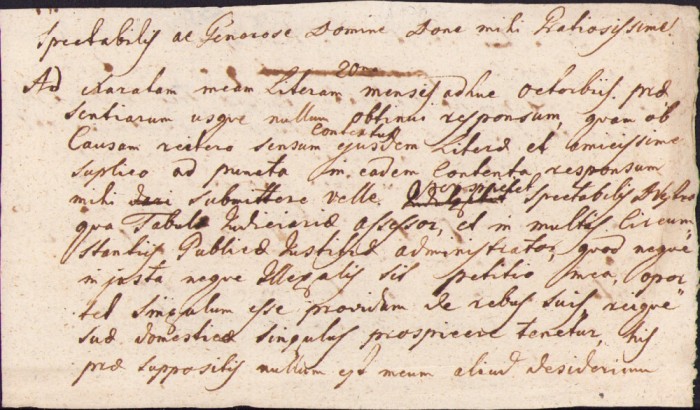 Spectabilis ac Generose Domine Done mihi Gratiosissime!
20
Ad exaratam meam Literam mensis adhuc Octobris præ
sentiarum usque nullum obtinui responsum, quem ob
Causam reitero sensum ejusdem Literæ et amicissime
Contentum
suplico ad puncta in eadem Contenta responsum
mihi submittere velle. perspiciet Spectabilis D
qua Tabulæ Judiciariæ assessor, et in multis Circum
stantiis Publicæ Justitiæ administrator, quod neque
injusta neque Illegalis sit petitio mea, opor
tet singulum esse providum de rebus suis, reique
suæ domesticæ singulus prospicere tenetur, his
præ suppositis nullum est meum aliud desiderium